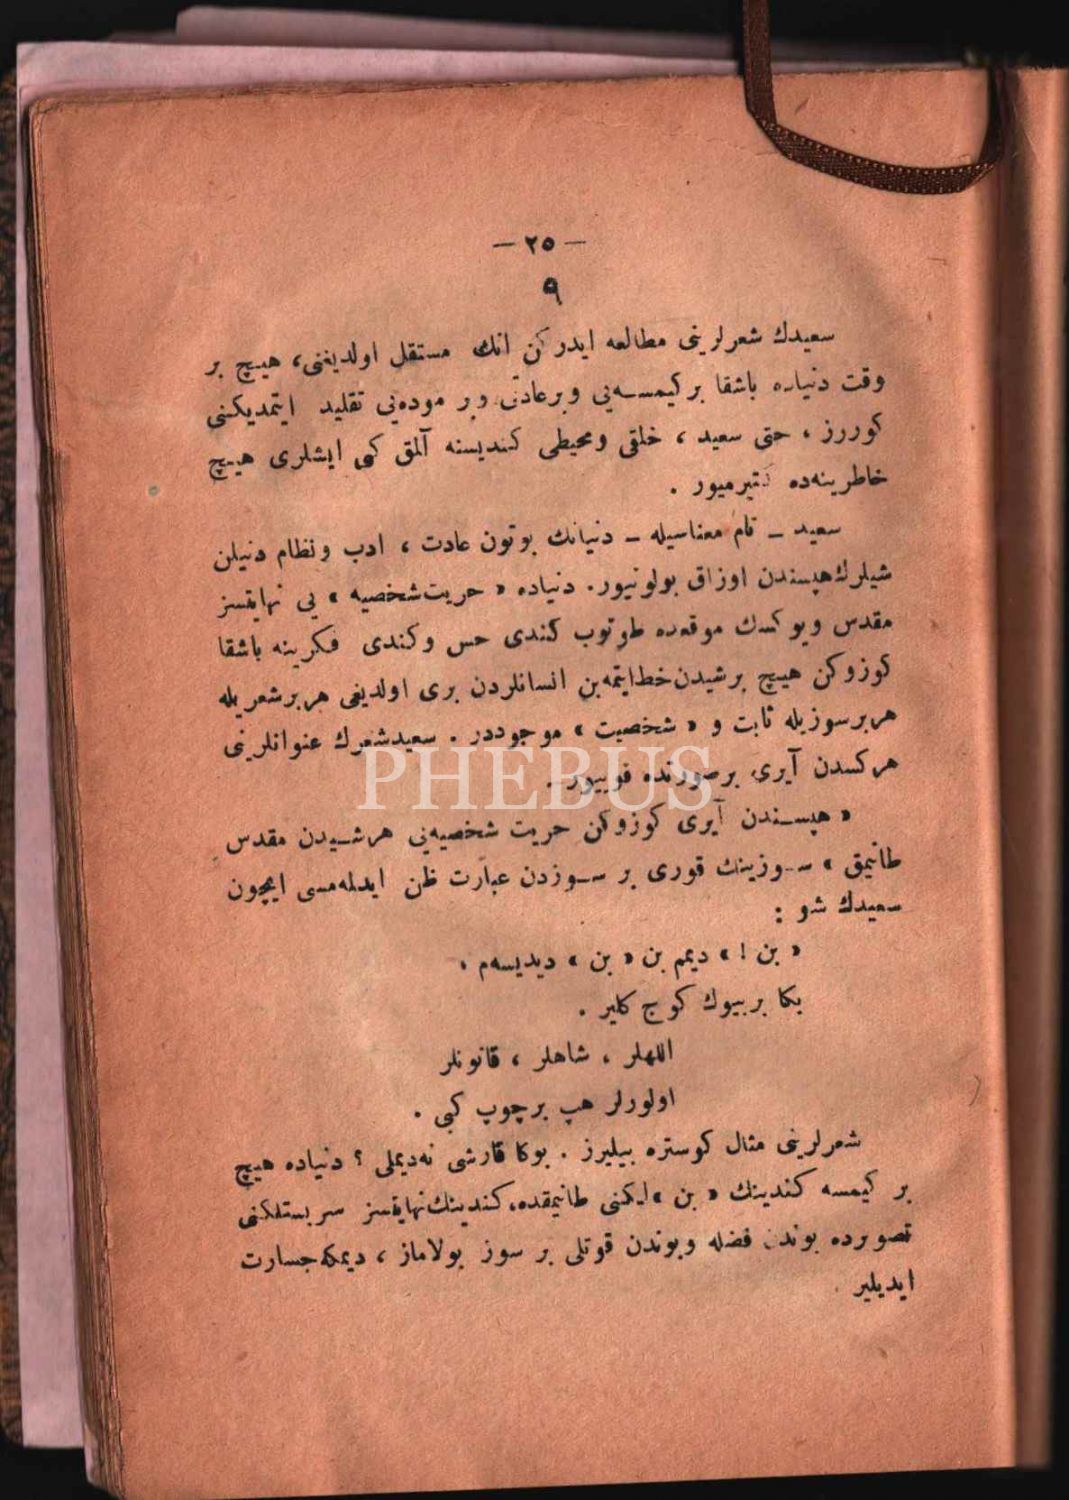 — ٢٥ —
٩
سعيدك شعرلرينى مطالعه ايدركن انك مستقل اولديغنى، هيچ بر
وقت دنياده باشقا بركيمسه‌يى وبرعادتى وبر موده‌يى تقليد ايتمديكنى
كوررز ، حتى سعيد ، خلقى ومحيطى كنديسنه آلمق كبى ايشلرى هيچ
خاطرينه‌ده كتيرميور .
سعيد ـ تام معناسيله ـ دنيانك بوتون عادت ، ادب ونظام دنيلن
شيلرك هپسندن اوزاق بولونيور. دنياده « حريت شخصيه » يى نهايتسز
مقدس ويوكسك موقعده طوتوب كندى حس وكندى فكرينه باشقا
كوزوكن هيچ برشيدن خط ايتمه‌ين انسانلردن برى اولديغى هربرشعريله
هربرسوزيله ثابت و « شخصيت » موجوددر . سعيد شعرك عنوانلرينى
هركسدن آيرى برصورتده قويييور .
PHEBUS
« هپسندن آيرى كوزوكن حريت شخصيه‌يى هرشيدن مقدس
طانيمق » سوزينك قورى بر سوزدن عبارت ظن ايدلمه‌مسى ايچون
سعيدك شو :
« بن ! » ديمم بن « بن » ديديسه‌م ،
بكا بربيوك كوچ كلير .
اللهلر ، شاهلر ، قانونلر
اولورلر هپ برچوپ كبى .
شعرلرينى مثال كوستره بيليرز . بوكا قارشى نه‌ديملى ؟ دنياده هيچ
بر كيمسه كندينك « بن » ليكنى طانيمقده، كندينك نهايتسز سربستلكنى
تصويرده بوندن فضله وبوندن قوتلى بر سوز بولاماز ، ديمكه جسارت
ايديلير